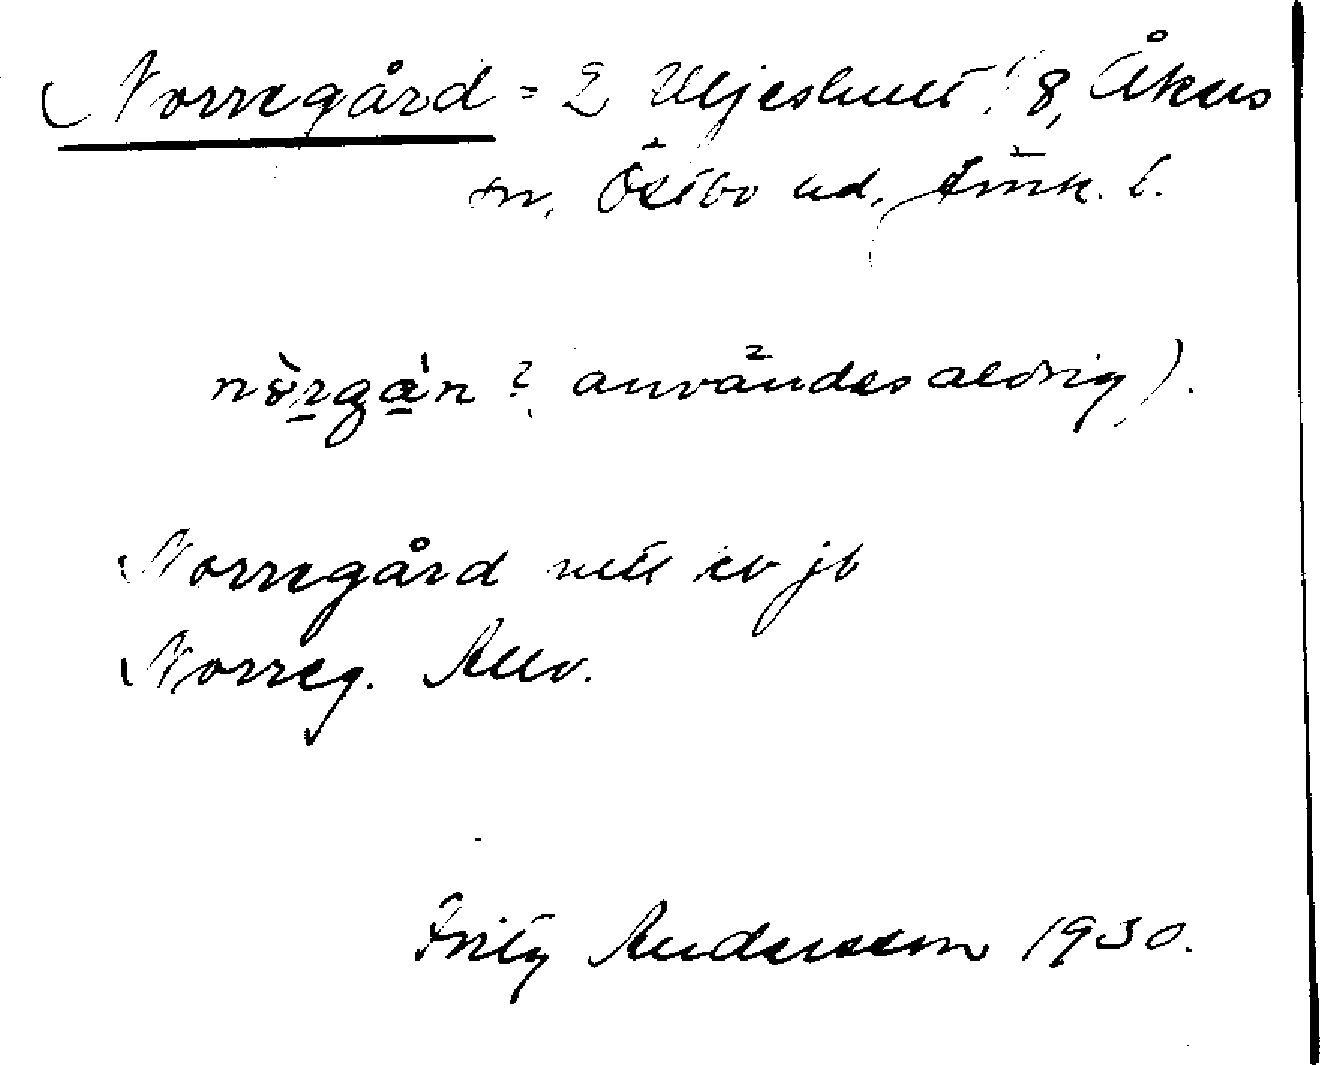 Norregård = 2 Uljeshult 8, Åkers
sn, Östbo hd, Jönk. l.
nò̤rga̱'n (användes aldrig).
Norregård nett ev jb
Norreg. Allv.
Fritz Andersson 1930.